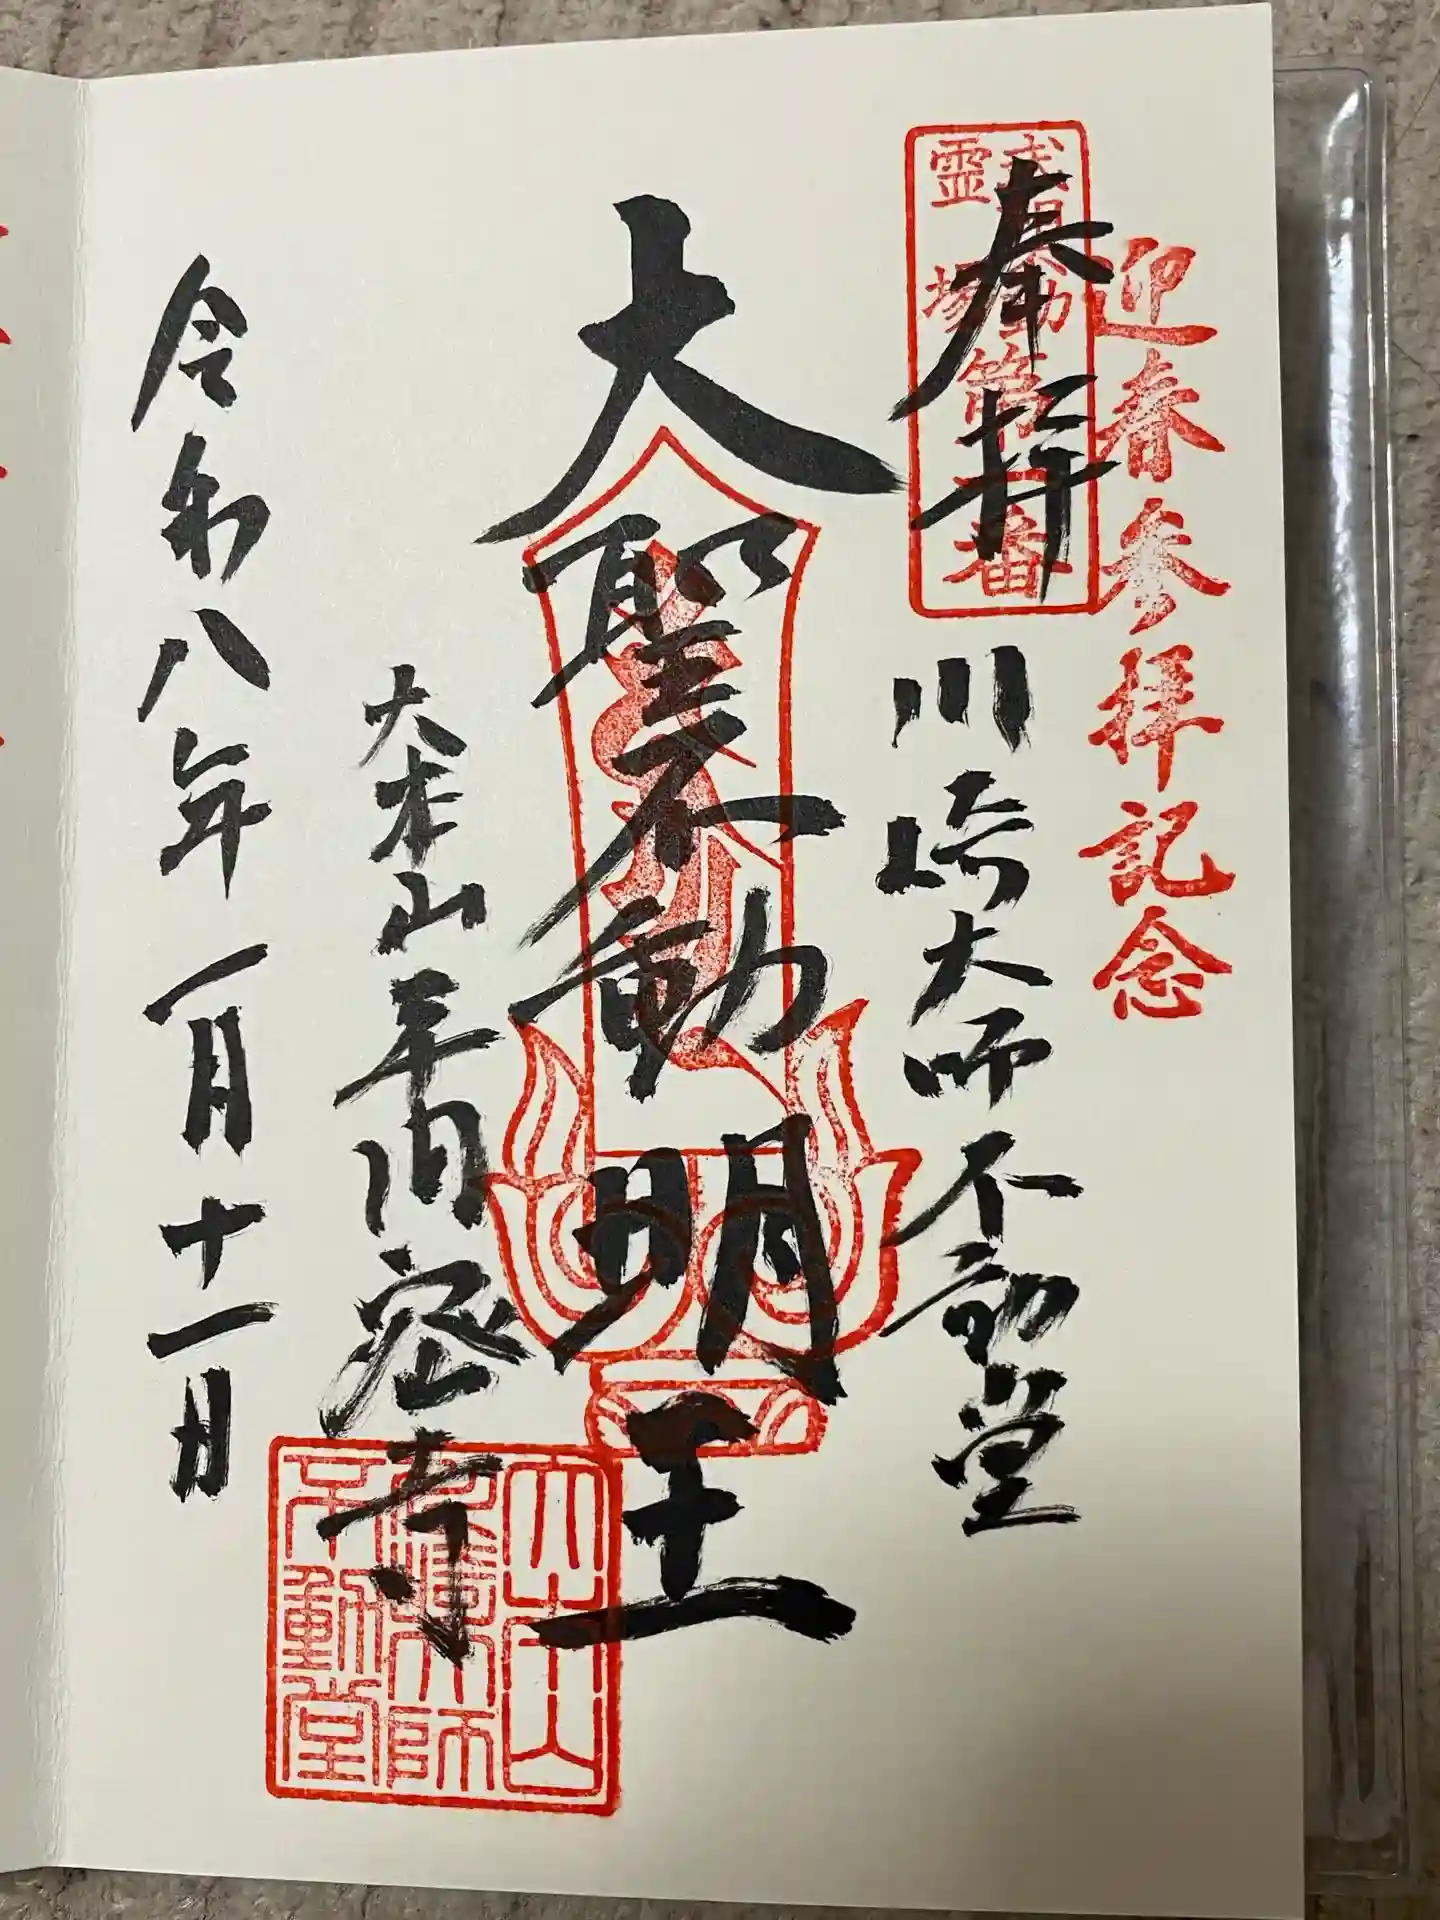 迎春参拝記念
奉拝
武相不動
霊場
第一番
川崎大師不動堂
大聖不動明王
大本山平間密寺
大本山
川崎大師
不動堂
令和八年一月十一日